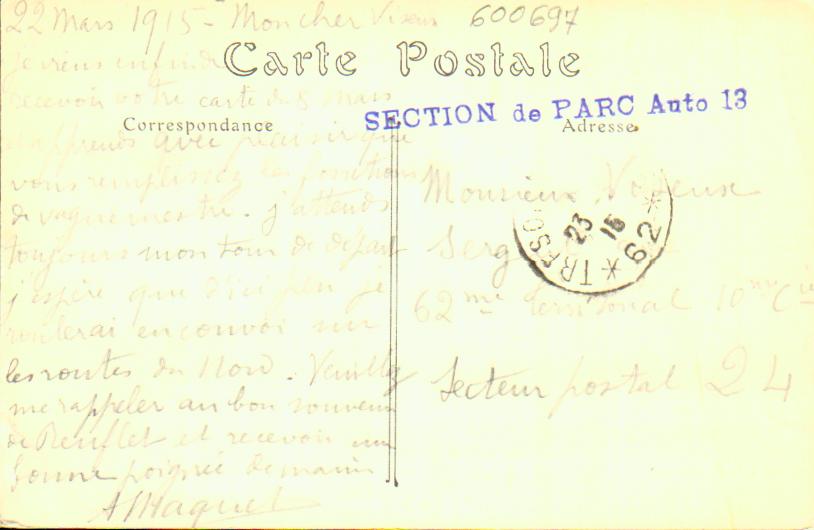 22 Mars 1915 - Mon cher
600697
Carte Postale
je viens enfin de
recevoir votre carte du 8 Mars
SECTION de PARC Auto 13
Correspondance
Adresse
apprends avec plaisir que
vous remplissez les fonctions
de vaguemestre. j'attends
toujours mon tour de départ
j'espère que d'ici peu je
roulerai en convoi sur
les routes du Nord. Veuillez
me rappeler au bon souvenir
de et recevoir une
bonne poignée de main
Monsieur
TRESOR
23
15
* 62 *
62me Territorial 10me Cie
Secteur postal 24